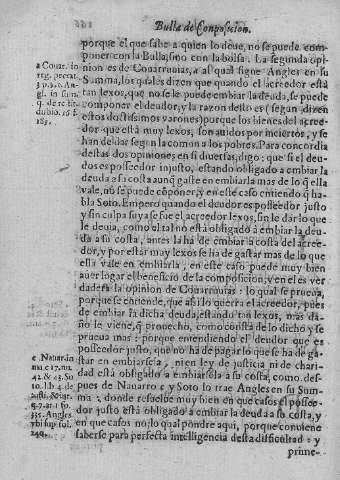 Bulla de Conposicion.
porque el que sabe a quien lo deue, no se puede com-
poner con la Bulla, sino con la bolsa. La segunda opi-
nion es de Couarruuias, a al qual sigue Angles en su
Summa, los quales dizen que quando el acreedor está
tan lexos, que no se le puede embiar la deuda, se puede
componer el deudor, y la razon desto es (segun dizen
estos doctissimos varones) porque los bienes del acree-
dor que está muy lexos, son auidos por inciertos, y se
han de dar segun la comun a los pobres. Para concordia
destas dos opiniones en si diuersas, digo: que si el deu-
dor es possedor injusto, estando obligado a embiar la
deuda a su costa aunq gaste en embiarla mas de lo q ella
vale, no se puede cōponer, y en este caso entiendo q ha-
bla Soto. Empero quando el deudor es possedor justo
y sin culpa suya se fue el acreedor lexos, sin le dar lo que
le deuia, como el tal no está obligado a embiar la deu-
da a su costa, antes la ha de embiar a costa del acree-
dor, y por estar muy lexos se ha de gastar mas de lo que
ella vale en embiarla, en este caso puede muy bien
auer lugar el beneficio de la composicion, y en el es ver
dadera la opinion de Couarruuias: lo qual se prueua,
porque se entiende, que assi lo querra el acreedor, pues
de embiar la dicha deuda, estando tan lexos, mas da-
ño le viene, q prouecho, como consta de lo dicho y se
prueua mas: porque entendiendo el deudor que es
possedor justo, que no ha de pagar lo que se ha de gas-
tar en embiarsela, nien ley de justicia ni de chari-
dad está obligado a embiarsela a su costa, como des-
pues de Nauarro c y Soto lo trae Angles en su Sum
ma: donde resuelue muy bien en que casos el posseedor
justo está obligado a embiar la deuda a su costa, y
en que casos no: lo qual pondre aqui, porque conuiene
saberse para perfecta intelligencia desta dificultad: y
prime-
a Couar. in
reg. peccat.
Angl. in sum.
q. de restit.
c Nauar. in
ma c 17. nu.
42. & 43. So
to. lib. 4. de
335. Angles
vbi sup. fol.
249.